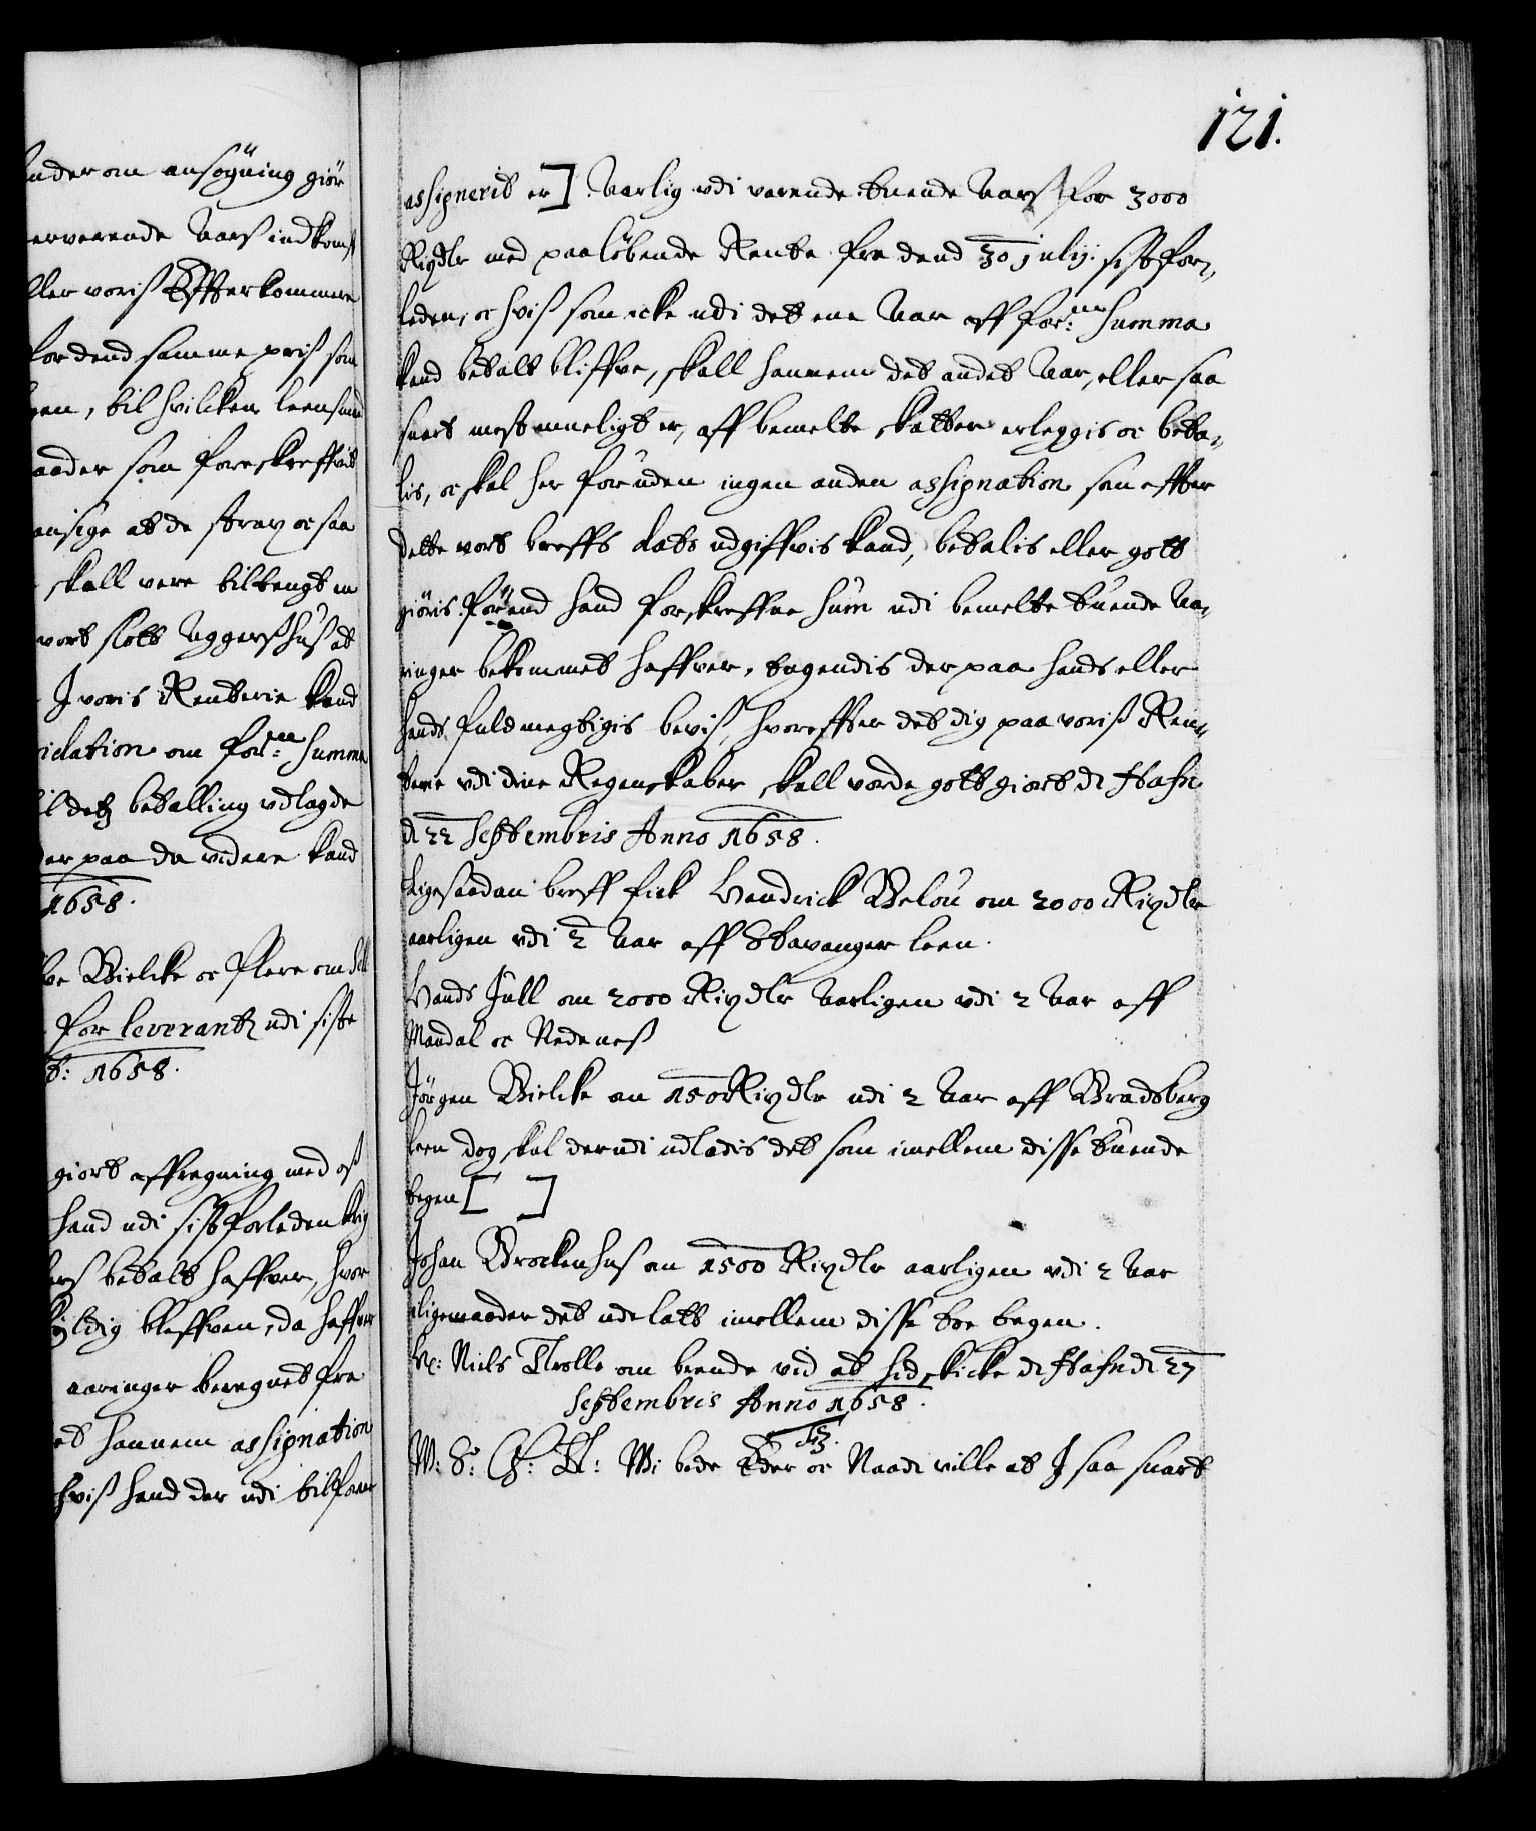 121.
nder om ansøgning giør
erverende Aars indkomst
ller voris Effterkommere
for dend samme priß som
gen, til hvilcken
aader som foreskreffvit
ansige at de strax oc saa
skall vere tiltengt en
vort slott Aggershuß at
I voris Renterie kand
om for:ne Summa
il detz betalling vdlagde
der paa da videre kand
1658.
be Bielcke oc flere om
for leverantz udi siste
t: 1658.
giort affregning med oß
hand udi sistforleden krig
ers betalt haffver, hvor
skyldig bleffven, da haffver
aaringer beregnet fra
et hannem assignation
hviß hand der udi tilforne
assignerit er] Aarlig vdi verende tuende Aars for 3000
Rixdlr med paaløbende Rente fra dend 30 julij sistfor-
leden, oc hviß som icke udi det ene Aar aff for:ne Summa
kand betalt bliffve, skall hannem det andet Aar, eller saa
snart mest mueligt er, aff bemelte skatter erleggis oc beta-
lis, oc skal her foruden ingen anden assignation som effter
dette vort breffs dato udgiffvis kand, betalis eller gott
giøris førend hand forskreffne Sum udi bemelte tuende Aa-
ringer bekommet haffver, tagendis der paa hands eller
hands fuldmegtigis beviß, hvoreffter det dig paa voriß Ren-
terie vdi dine Regenskaber skall vorde gott giort di Hafn
d 22 Septembris Anno 1658.
Ligesaadan breff fick Hendrick Belou om 2000 Rixdlr
aarligen vdi 2 Aar aff Stavanger leen.
Hands Jull om 2000 Rixdlr Aarligen vdi 2 Aar aff
Mandal oc Nedeneß
Jørgen Bielcke om 1500 Rixdlr udi 2 Aar aff Bradsberg
leen dog skal derudi udladis det som imellem disse tuende
tegen [ ]
Johan Brockenhuß om 1500 Rixdlr aarligen vdi 2 Aar
iligemaader det udelatt imellem disse toe tegen.
Hr: Niels Trolle om teende vid at hid skicke di Hafn di 27
Septembris Anno 1658.
W: S: G: T: Wi bede Eder oc Naadi ville at I saa snart